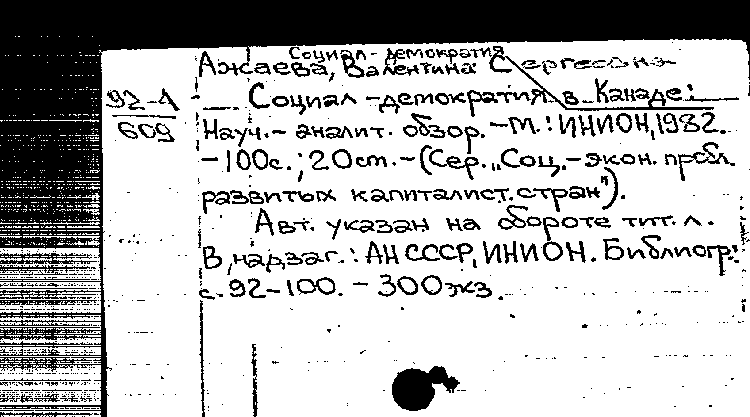 Социал-демократия
Ажаева, Валентина Сергеевна
92-4
609
Социал-демократия в Канаде:
Науч.- аналит. обзор. - М.: ИНИОН, 1982.
-100с.; 20см. - (Сер. „Соц.-экон. пробл.
развитых капиталист. стран").
Авт. указан на обороте тит. л.
В надзаг.: АН СССР, ИНИОН. Библиогр.:
с. 92-100. - 300экз.